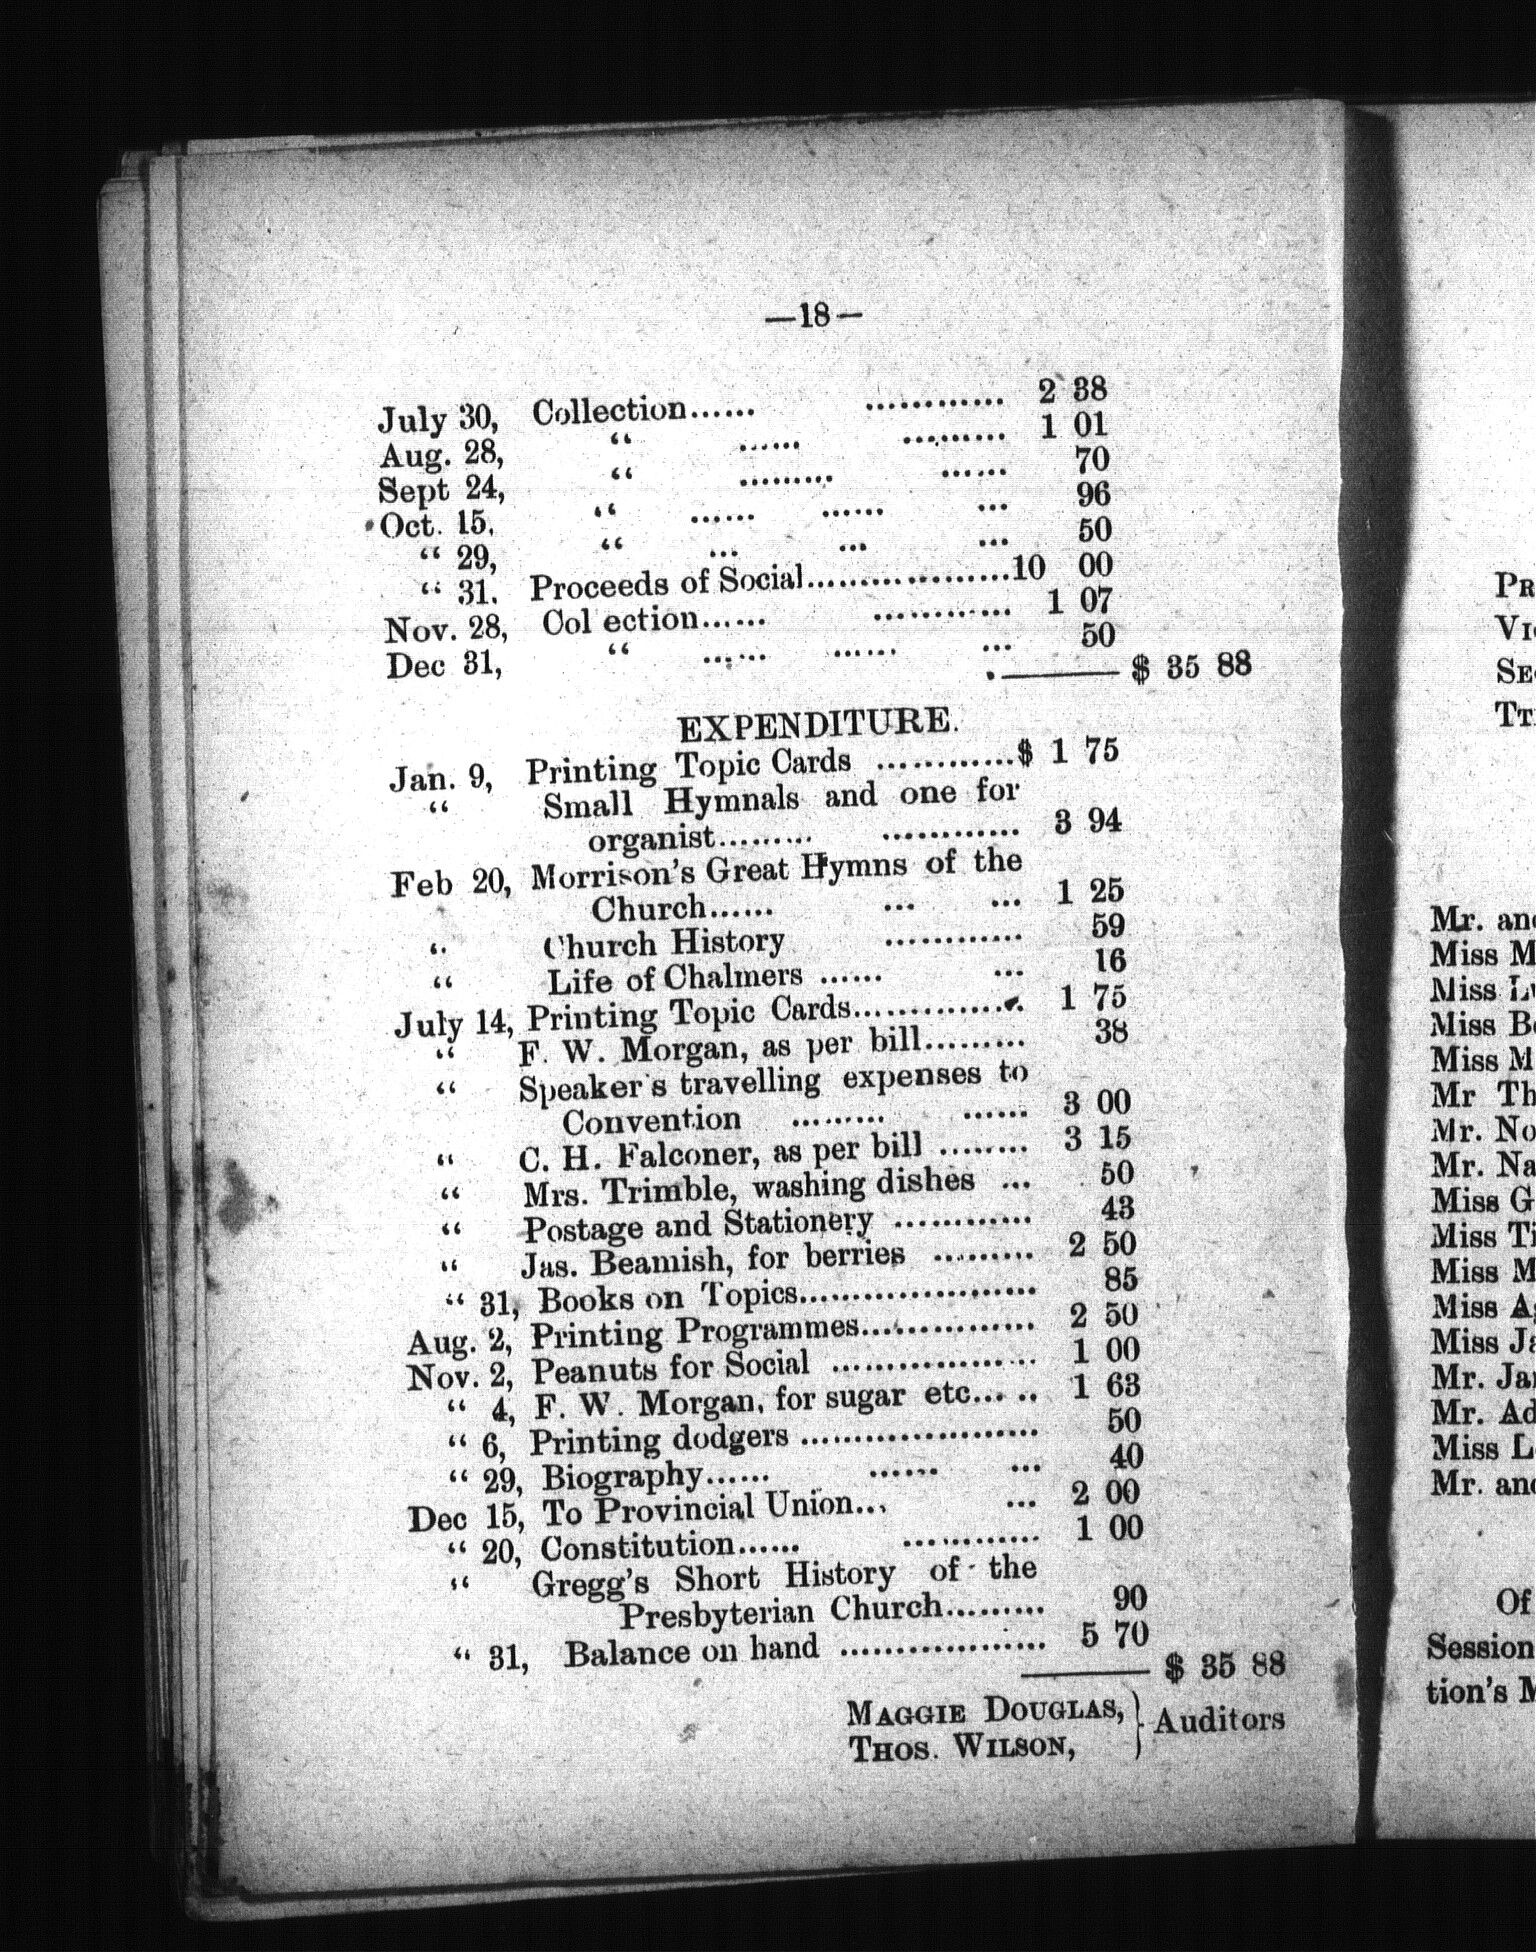 —18—
July 30, Collection...... ............ 2 38
Aug. 28, “ ...... ......... 1 01
Sept 24, “ ......... ...... 70
Oct. 15. “ ...... ...... ... 96
“ 29, “ ... ... ... 50
“ 31. Proceeds of Social...................10 00
Nov. 28, Col ection...... ............ 1 07
Dec 31, “ ...... ...... ... 50
——— $ 35 88
EXPENDITURE.
Jan. 9, Printing Topic Cards ............$ 1 75
“ Small Hymnals and one for
organist......... ............ 3 94
Feb 20, Morrison's Great Hymns of the
Church...... ... ... 1 25
“ Church History ............ 59
“ Life of Chalmers ...... ... 16
July 14, Printing Topic Cards............... 1 75
“ F. W. Morgan, as per bill......... 38
“ Speaker's travelling expenses to
Convention ......... ...... 3 00
“ C. H. Falconer, as per bill ......... 3 15
“ Mrs. Trimble, washing dishes ... 50
“ Postage and Stationery ............ 43
“ Jas. Beamish, for berries ......... 2 50
“ 31, Books on Topics..................... 85
Aug. 2, Printing Programmes............... 2 50
Nov. 2, Peanuts for Social .................. 1 00
“ 4, F. W. Morgan, for sugar etc... .. 1 63
“ 6, Printing dodgers ..................... 50
“ 29, Biography...... ...... ... 40
Dec 15, To Provincial Union... ... 2 00
“ 20, Constitution...... ............ 1 00
“ Gregg's Short History of the
Presbyterian Church......... 90
“ 31, Balance on hand .................. 5 70
——— $ 35 88
MAGGIE DOUGLAS, } Auditors
THOS. WILSON,
PR
VI
SE
Mr. an
Miss M
Miss
Miss B
Miss M
Mr Th
Mr. No
Mr. Na
Miss G
Miss Ti
Miss M
Miss A
Miss Ja
Mr. Ja
Mr. Ad
Miss L
Mr. and
Of
Session
tion's M